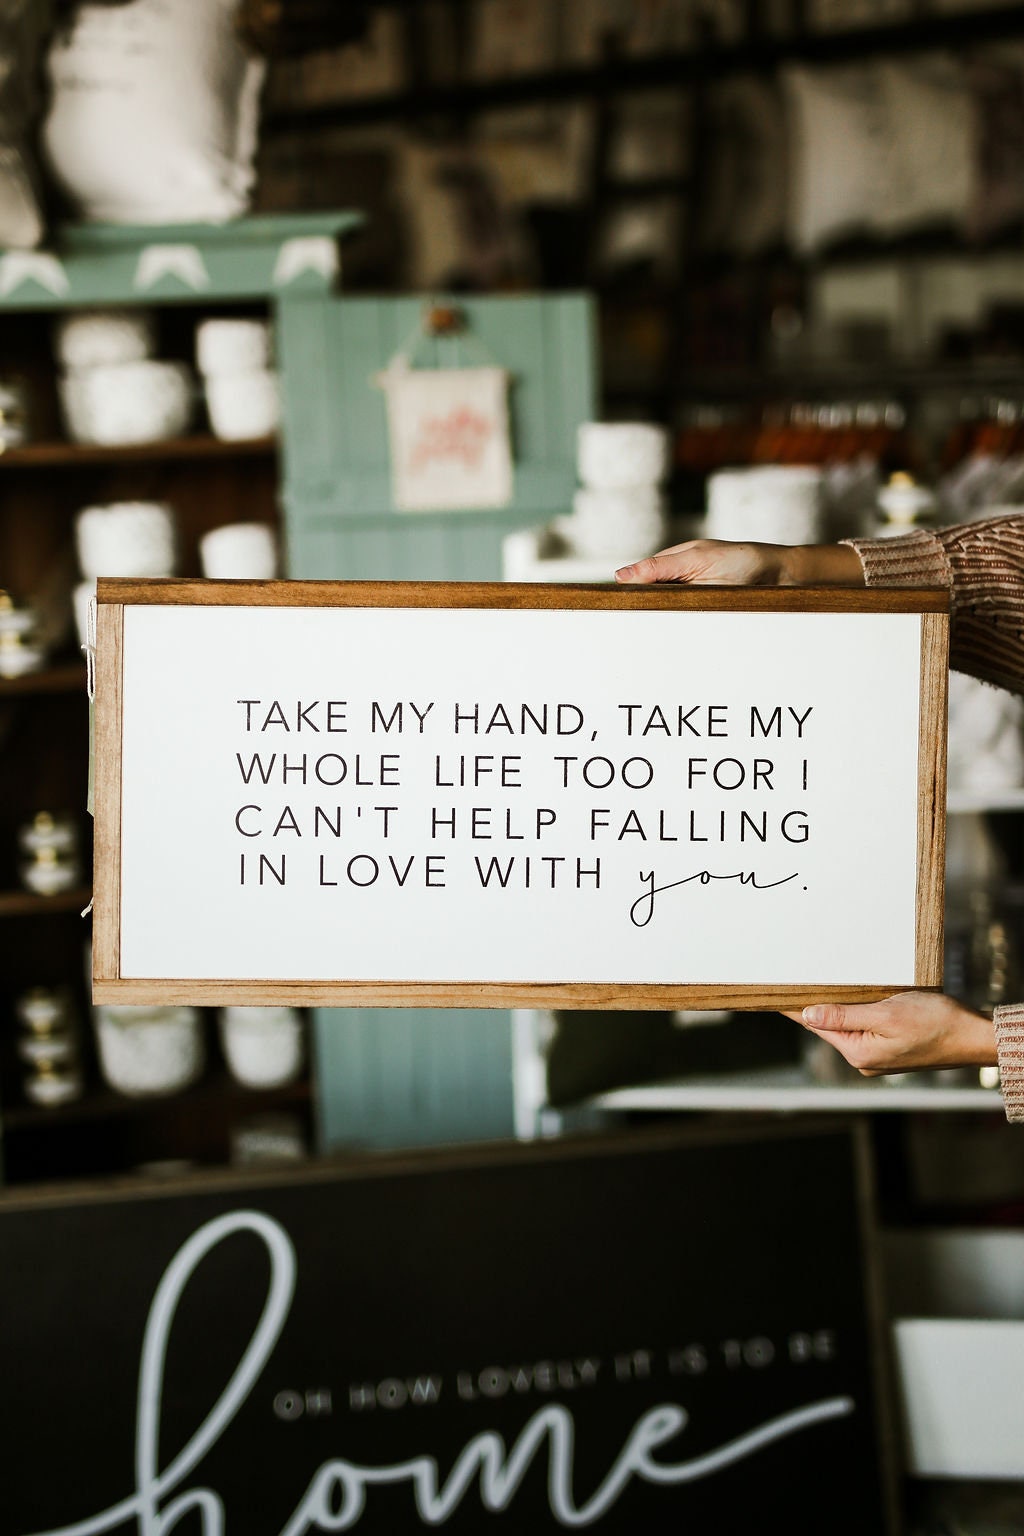 TAKE MY HAND, TAKE MY
WHOLE LIFE TOO FOR I
CAN'T HELP FALLING
IN LOVE WITH you.
OH HOW LOVELY IT IS TO BE
home